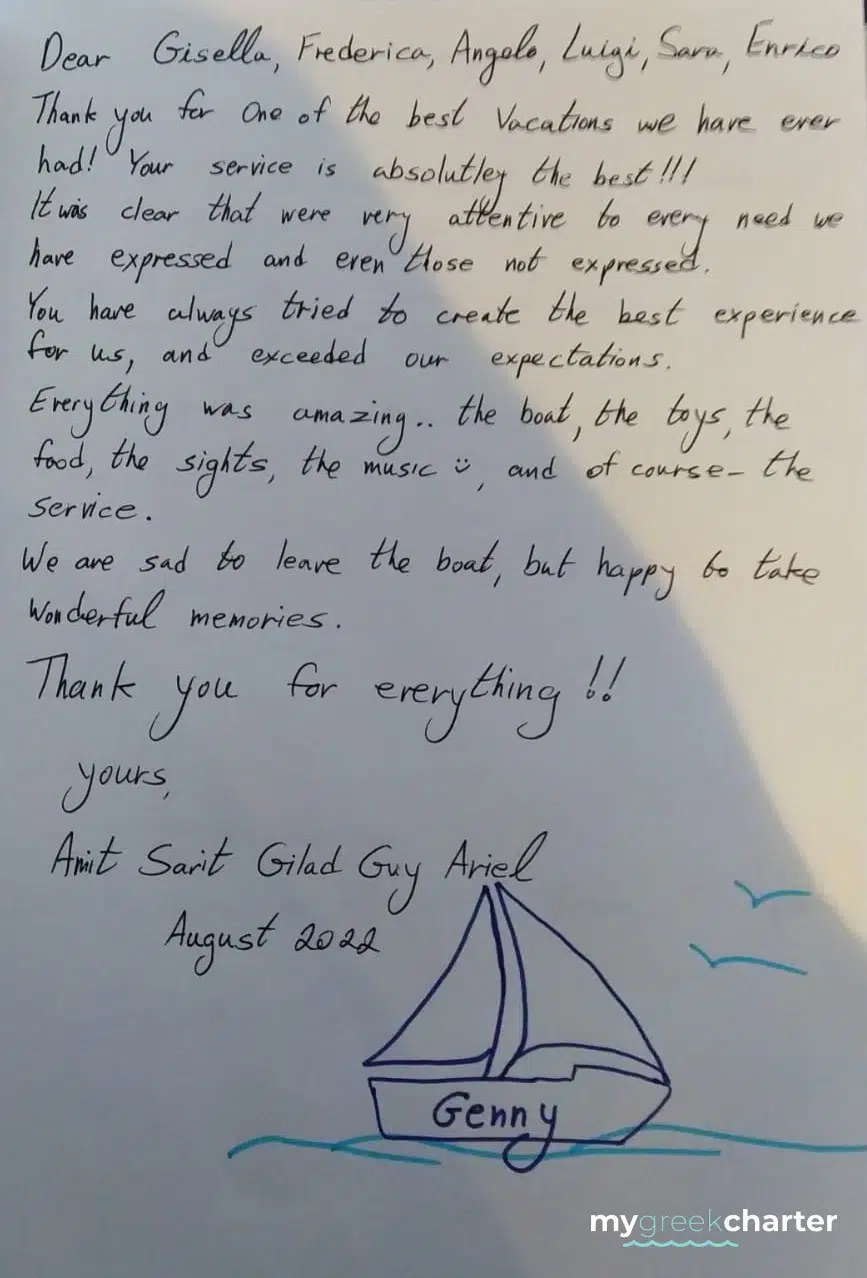 Dear Gisella, Frederica, Angelo, Luigi, Sara, Enrico
Thank you for One of the best Vacations we have ever
had! Your service is absolutley the best!!!
It was clear that were very attentive to every need we
have expressed and even those not expressed.
You have always tried to create the best experience
for us, and exceeded our expectations.
Everything was amazing.. the boat, the toys, the
food, the sights, the music ü, and of course - the
service.
We are sad to leave the boat, but happy to take
Wonderful memories.
Thank you for everything!!
yours,
Amit Sarit Gilad Guy Ariel
August 2022
Genny
mygreekcharter